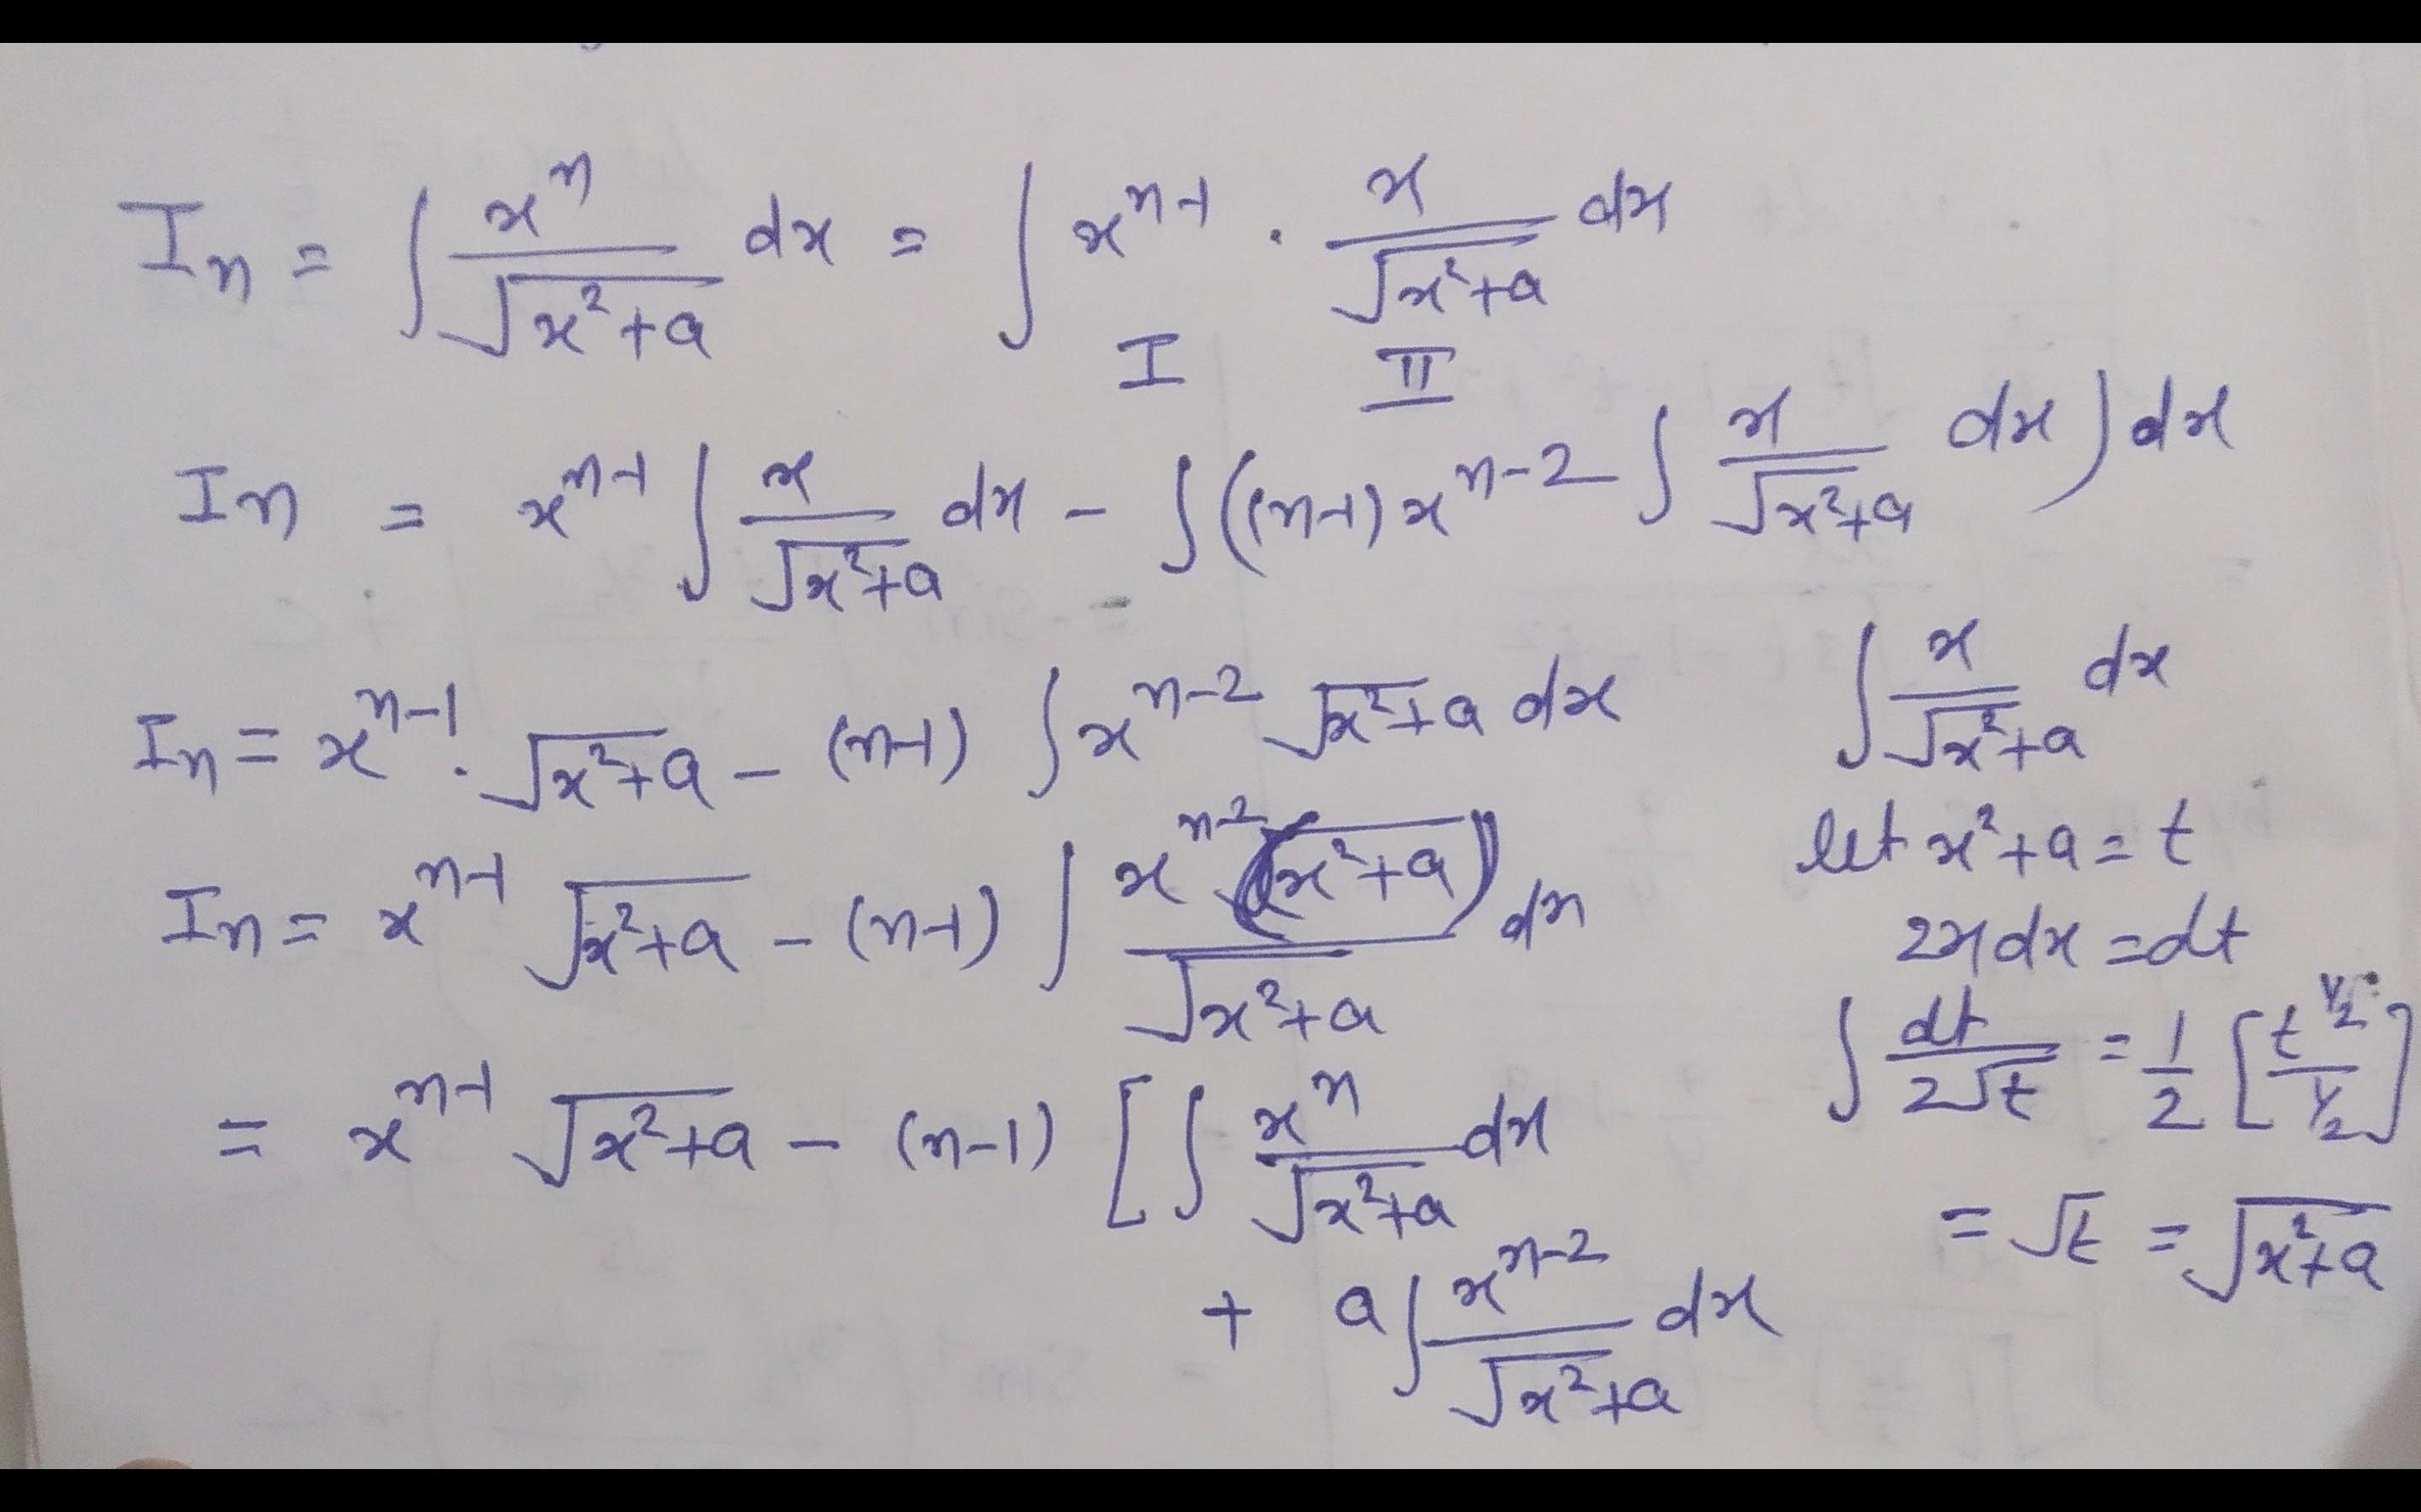 Iₙ = ∫ xⁿ/√(x²+a) dx = ∫ xⁿ⁻¹ · x/√(x²+a) dx
I II
Iₙ = xⁿ⁻¹ ∫ x/√(x²+a) dx − ∫((n-1) xⁿ⁻² ∫ x/√(x²+a) dx) dx
Iₙ = xⁿ⁻¹ · √(x²+a) − (n-1) ∫ xⁿ⁻² √(x²+a) dx
Iₙ = xⁿ⁻¹ √(x²+a) − (n-1) ∫ xⁿ⁻² (x²+a)/√(x²+a) dx
= xⁿ⁻¹ √(x²+a) − (n-1) [∫ xⁿ/√(x²+a) dx
+ a ∫ xⁿ⁻²/√(x²+a) dx
∫ x/√(x²+a) dx
let x²+a = t
2x dx = dt
∫ dt/2√t = 1/2 [t^½/½]
= √t = √(x²+a)